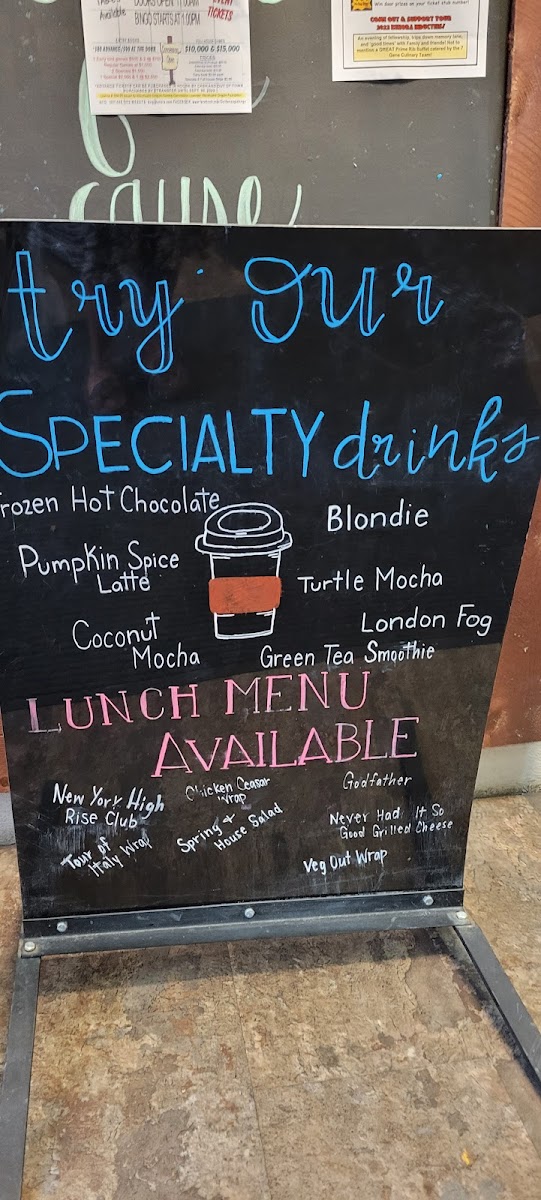 DOORS OPEN 11:00AM
BINGO STARTS AT 1:00PM
TICKETS
$10,000 & $15,000
Win door prizes on your ticket stub number!
COME OUT & SUPPORT YOUR
An evening of fellowship, trips down memory lane,
and "good times" with Family and friends! Not to
mention a GREAT Prime Rib Buffet catered by the 7
Gene Culinary Team!
cause
try our
SPECIALTY drinks
Frozen Hot Chocolate
Blondie
Pumpkin Spice
Latte
Turtle Mocha
Coconut
Mocha
London Fog
Green Tea Smoothie
LUNCH MENU
AVAILABLE
New York High
Rise Club
Chicken Ceasar
Wrap
Godfather
Tour of
Italy Wrap
Spring +
House Salad
Never Had It So
Good Grilled Cheese
Veg Out Wrap